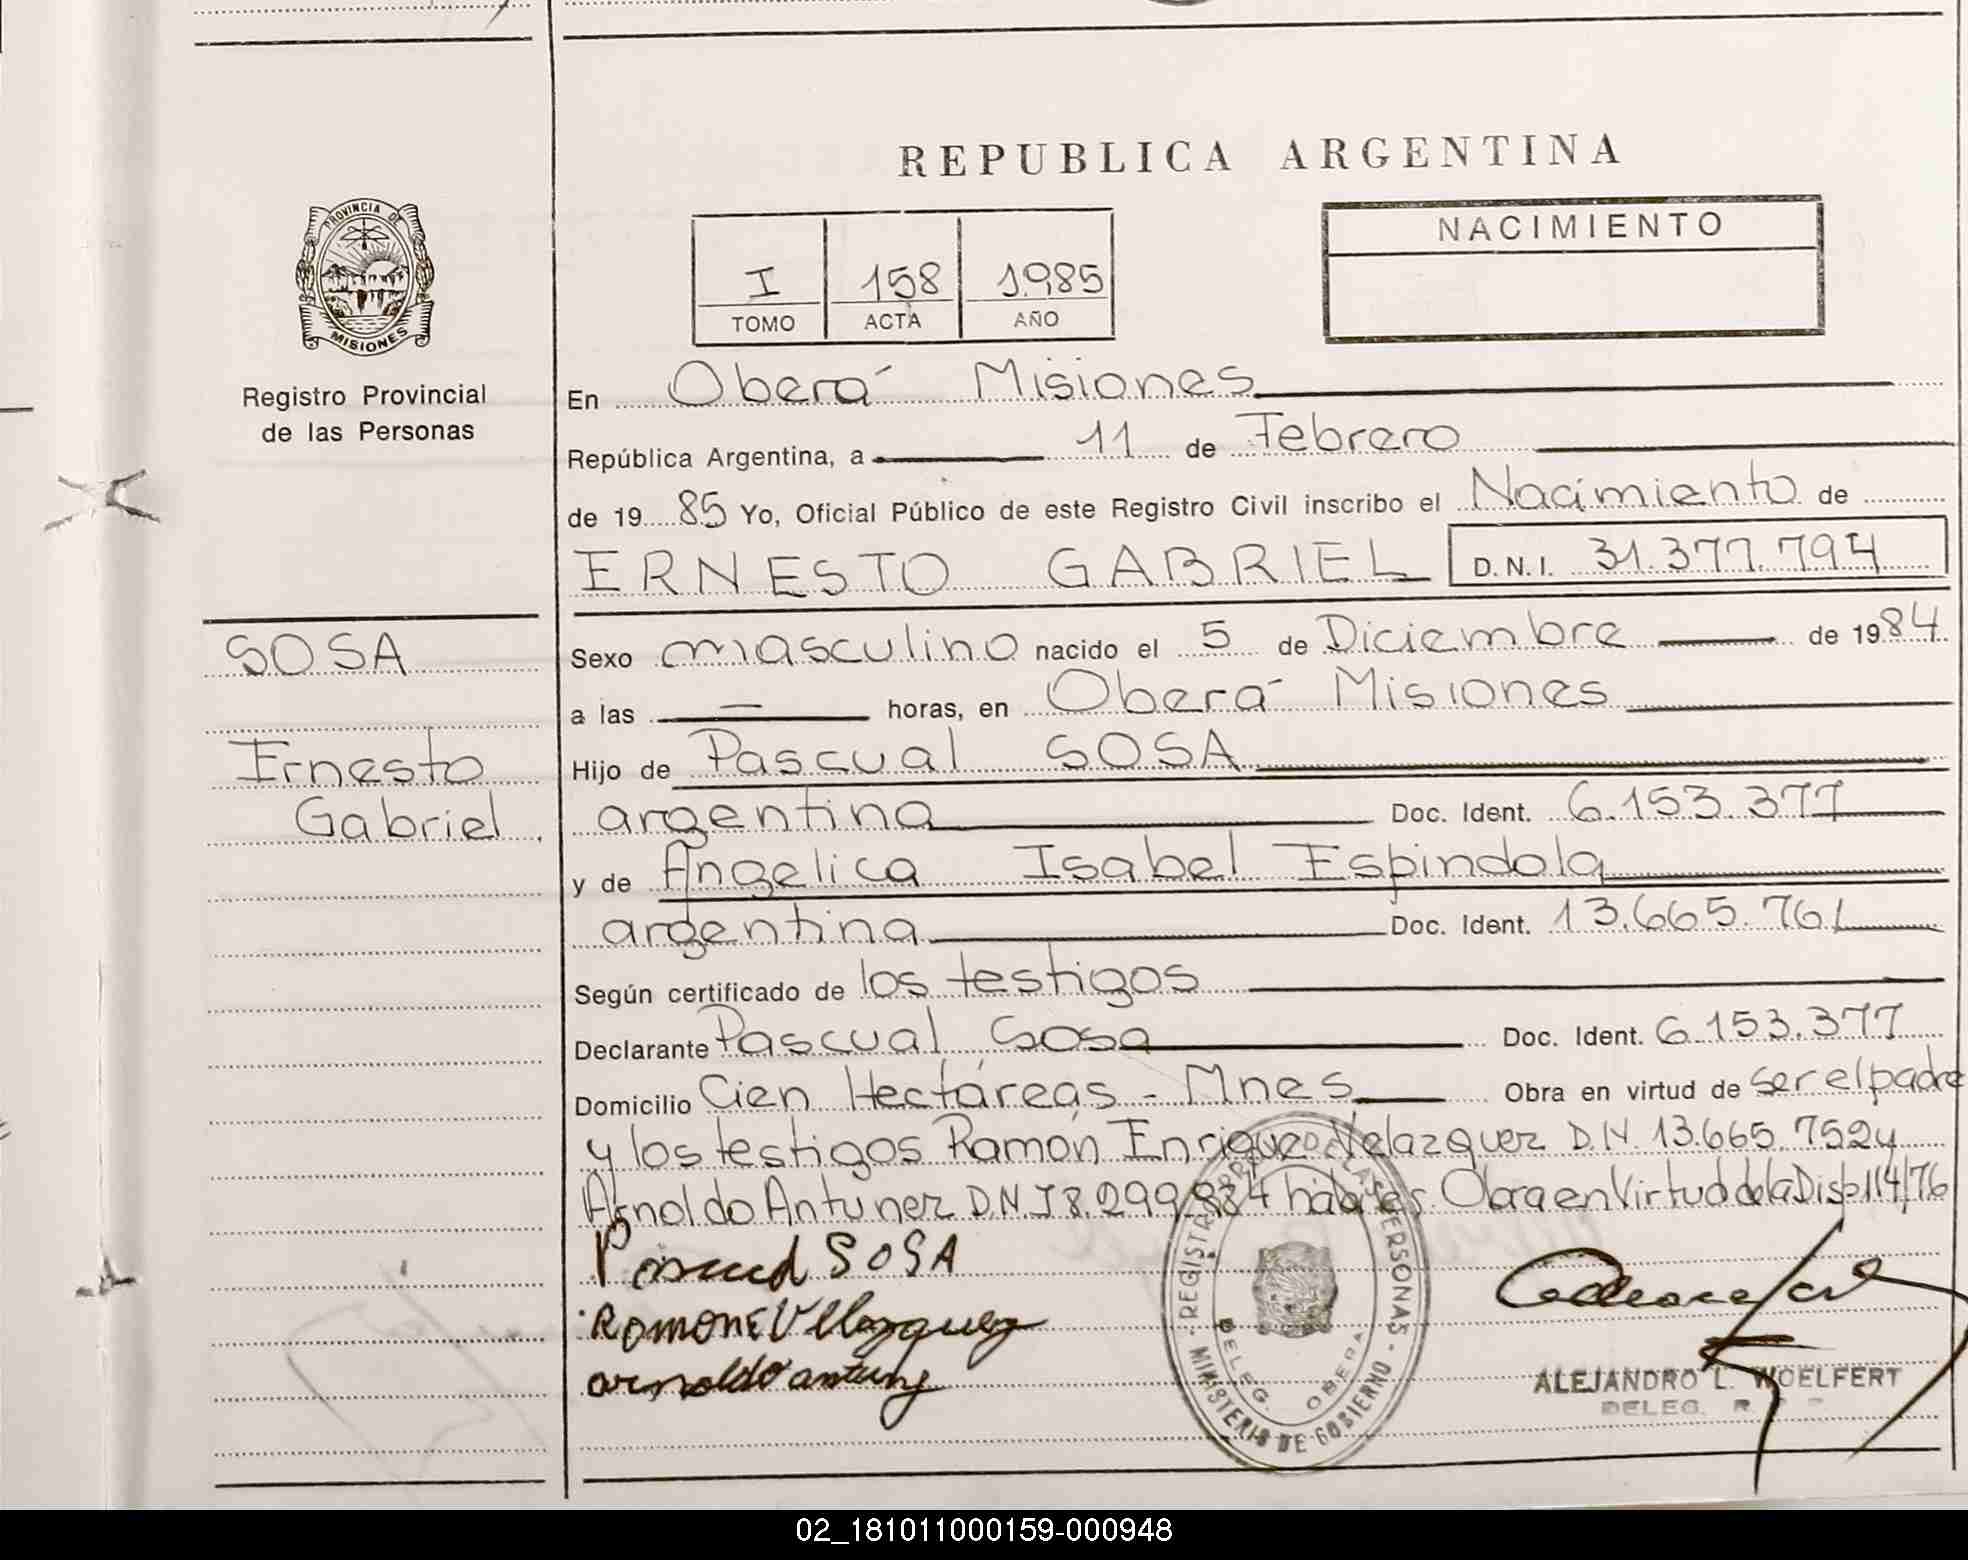 REPUBLICA ARGENTINA
PROVINCIA DE
MISIONES
Registro Provincial
de las Personas
I 158 1985
TOMO ACTA AÑO
NACIMIENTO
En Oberá Misiones
República Argentina, a 11 de Febrero
de 1985 Yo, Oficial Público de este Registro Civil inscribo el Nacimiento de
ERNESTO GABRIEL D.N.I. 31.377.794
SOSA
Ernesto
Gabriel
Sexo masculino nacido el 5 de Diciembre de 1984
a las — horas, en Oberá Misiones
Hijo de Pascual SOSA
argentina Doc. Ident. 6.153.377
y de Angelica Isabel Espindola
argentina Doc. Ident. 13.665.761
Según certificado de los testigos
Declarante Pascual Sosa Doc. Ident. 6.153.377
Domicilio Cien Hectáreas - Mnes Obra en virtud de ser el padre
y los testigos Ramón Enrique Velazquez D.N. 13.665.752 y
Arnoldo Antunez D.N.I 8.299.834 hábiles. Obra en Virtud de la Disp 114/76
SOSA
Ramon E Vellazquez
arnoldo antunez
REGISTRO PROV. DE LAS PERSONAS - MINISTERIO DE GOBIERNO -
DELEG. OBERA
ALEJANDRO L. WOELFERT
DELEG. R.
02_181011000159-000948